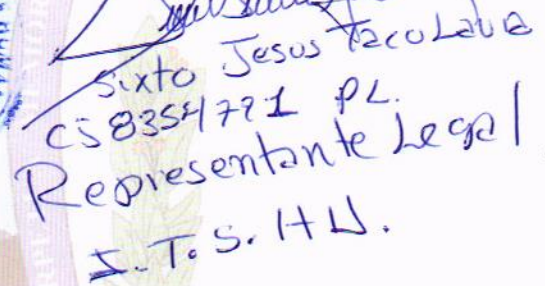 Sixto Jesus Taco Laura
CI 8354791 PL.
Representante Legal
I.T.S. HW.